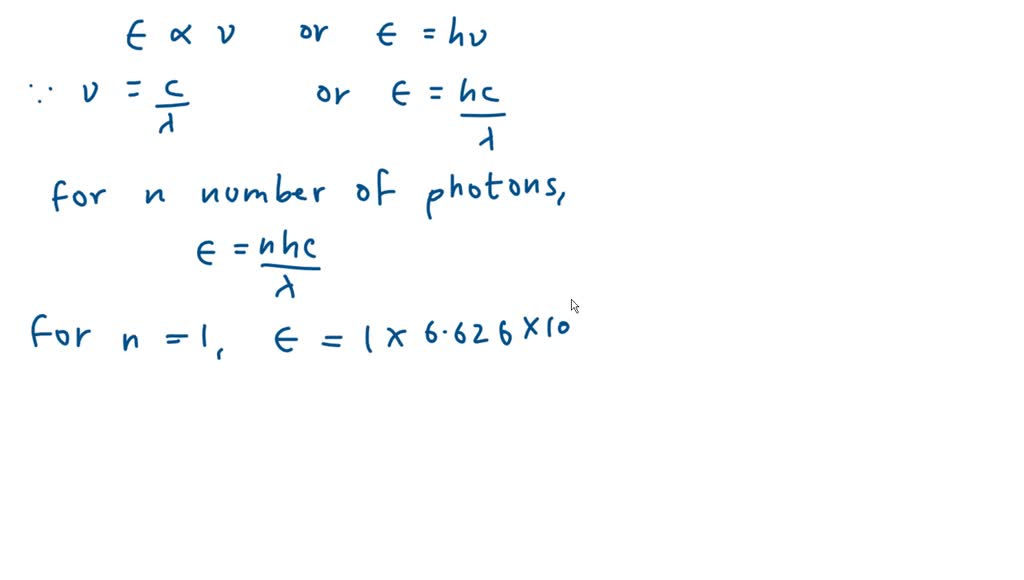 ϵ ∝ ν or ϵ = hν
∵ ν = c/λ or ϵ = hc/λ
For n number of photons,
ϵ = nhc/λ
For n = 1, ϵ = 1 × 6.626 × 10